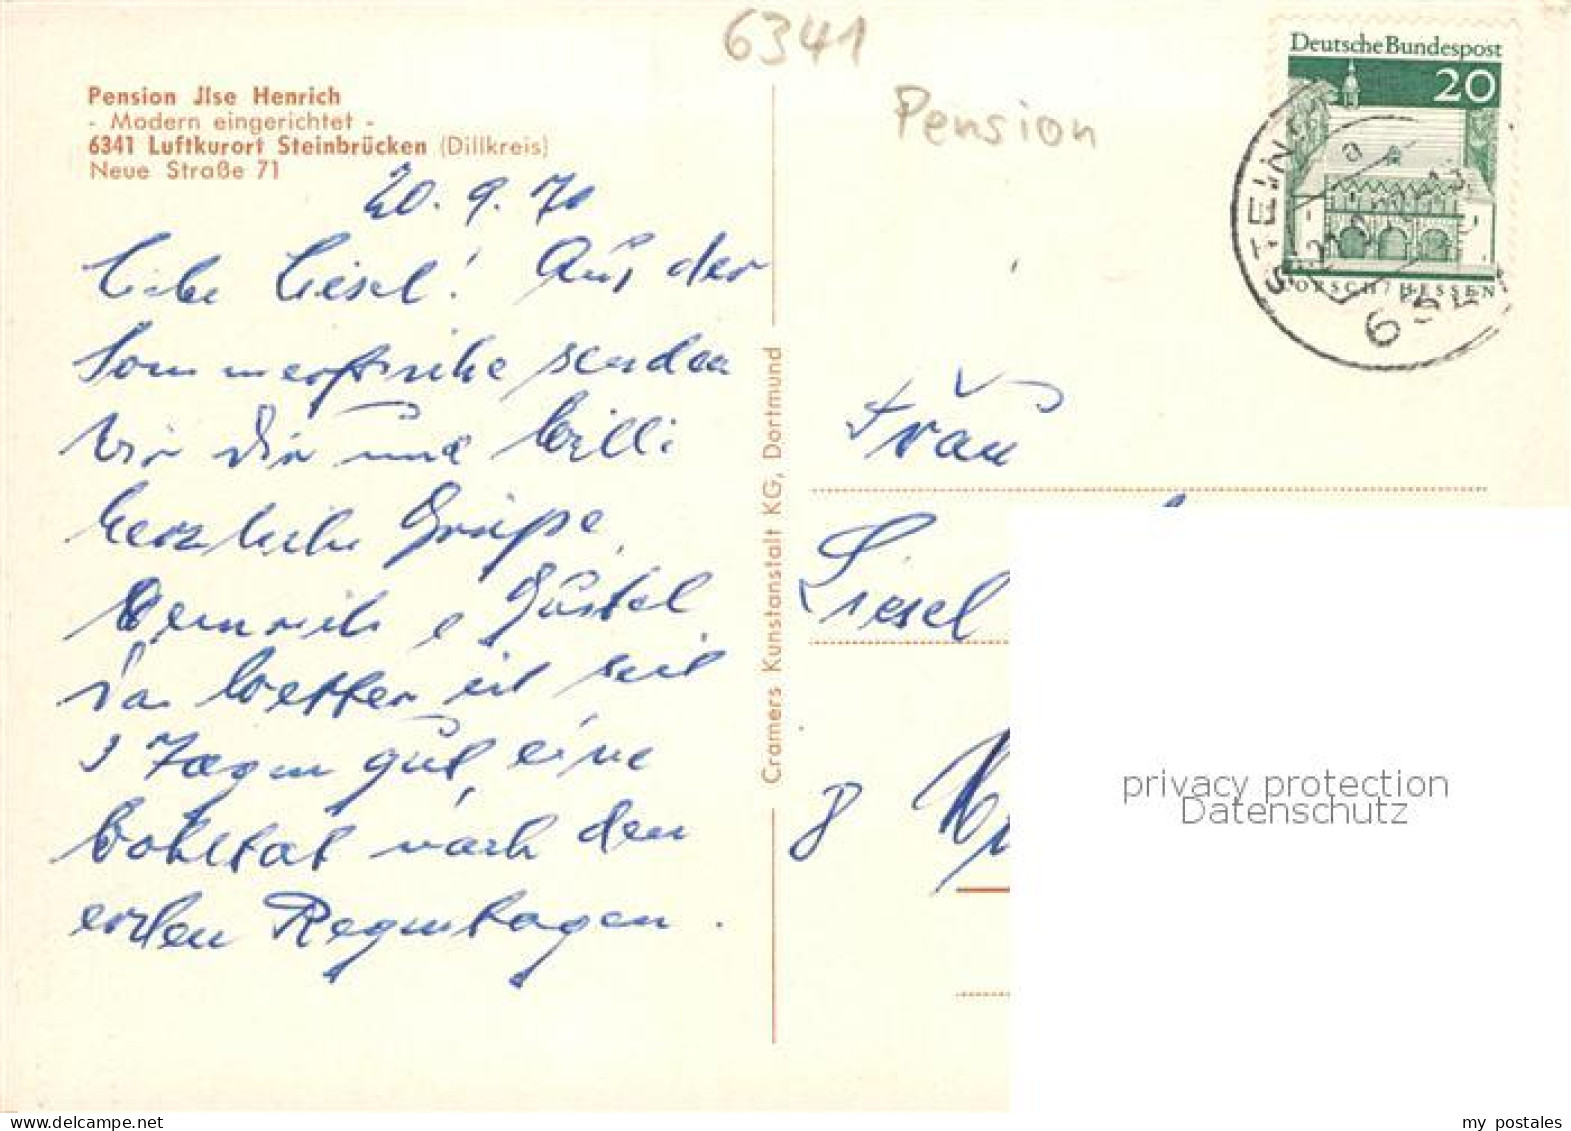 6341
Pension Jlse Henrich
- Modern eingerichtet -
6341 Luftkurort Steinbrücken (Dillkreis)
Neue Straße 71
Pension
Deutsche Bundespost
20
LORSCH / HESSEN
STEIN
634
20. 9. 70
Liebe Liesel! Aus der
Sommerfrische senden
wir Dir und Willi
herzliche Grüße
Heinrich e Gustel
Das Wetter ist seit
3 Tagen gut, eine
Wohltat nach den
ersten Regentagen.
Cramers Kunstanstalt KG, Dortmund
Frau
Liesel
8
privacy protection
Datenschutz
my postales